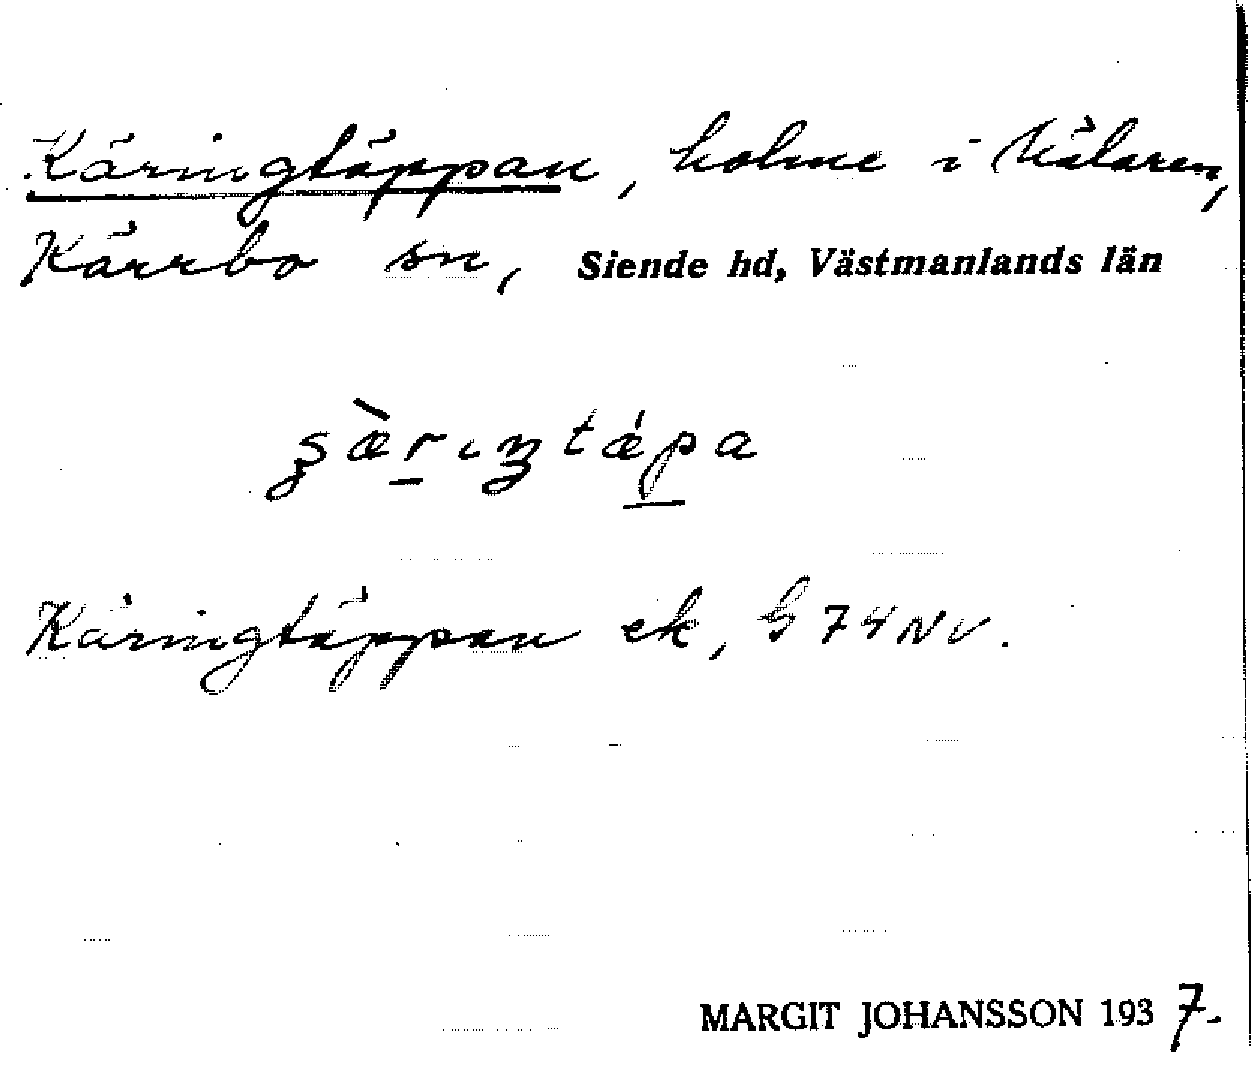 Käringtäppan, holme i Mälaren,
Kärrbo sn, Siende hd, Västmanlands län
Käringtäppan ek, G 74 NV.
MARGIT JOHANSSON 1937.